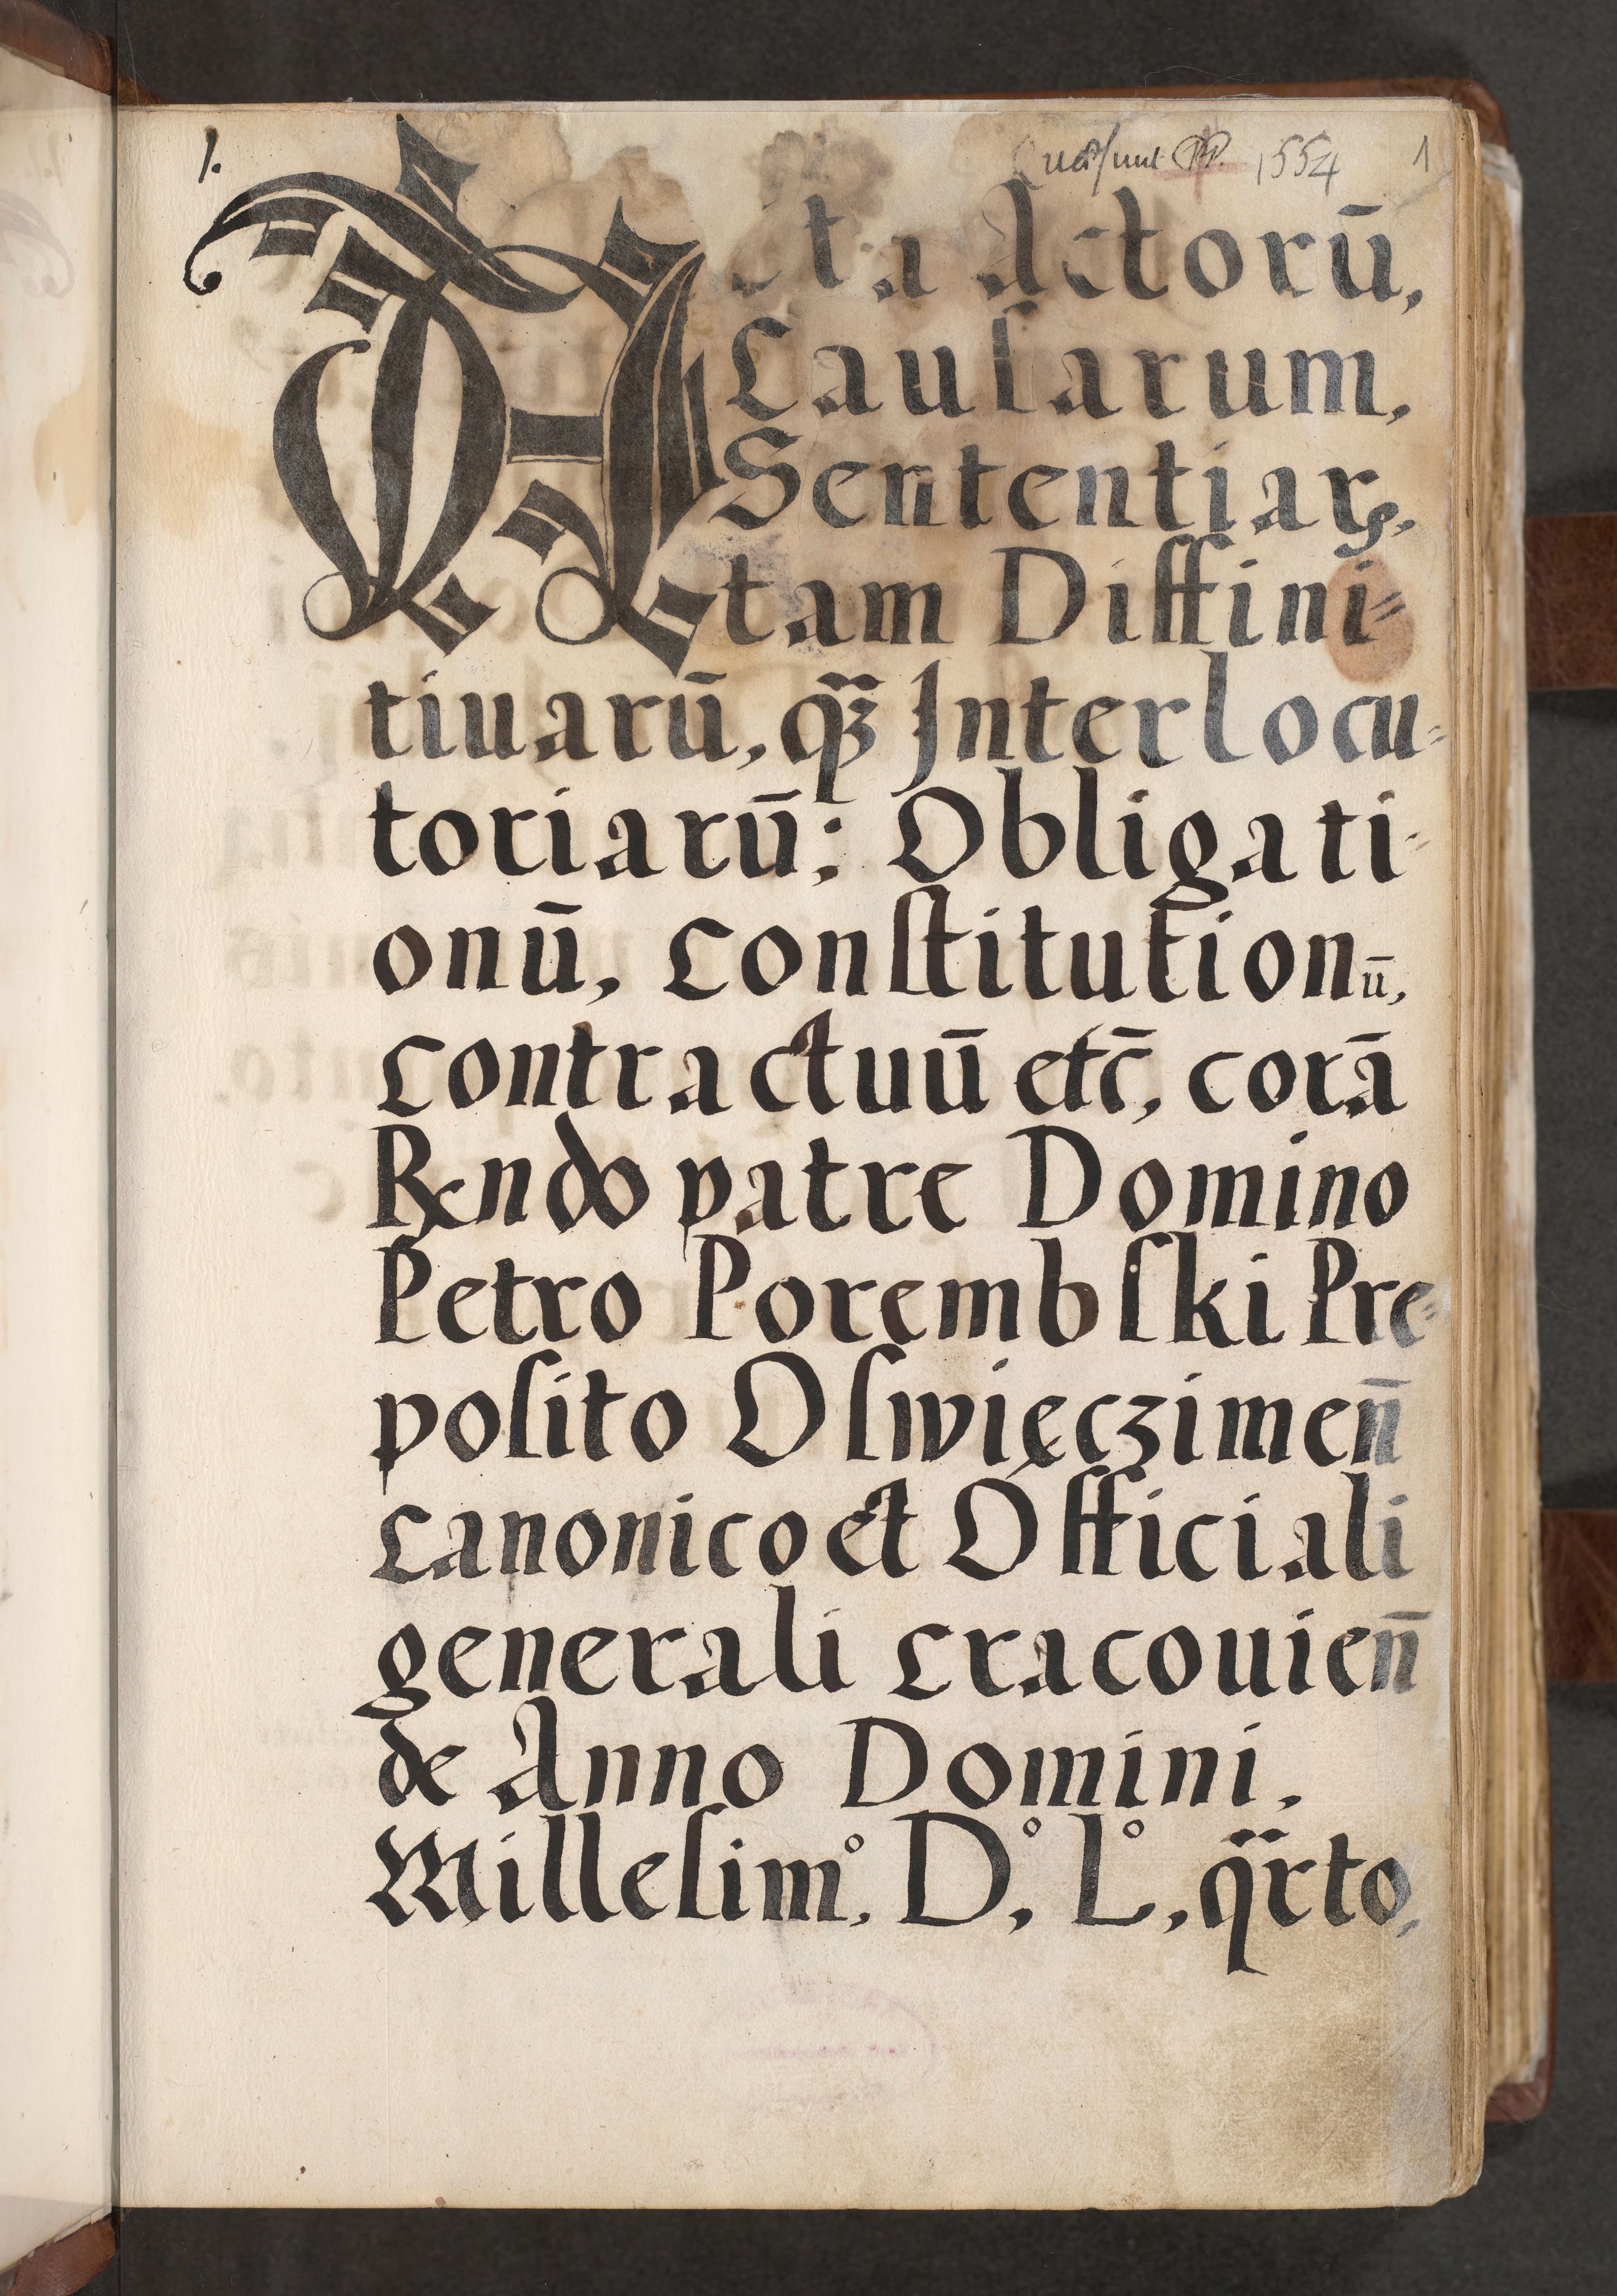 1. 1554 1
Acta Actorū,
Cauſarum,
Sententiaꝝ,
tam Diffini=
tiuarū, qꝫ̈ Interlocu=
toriarū; Obligati=
onū, Conſtitutionū,
Contractuū etc̄, corā
Rn̄do patre Domino
Petro Porembſki Pre=
poſito Oſwięczimen̄
Canonico et Officiali
generali Cracouien̄
de Anno Domini.
Milleſimº, Dº, Lº, qr̈to,